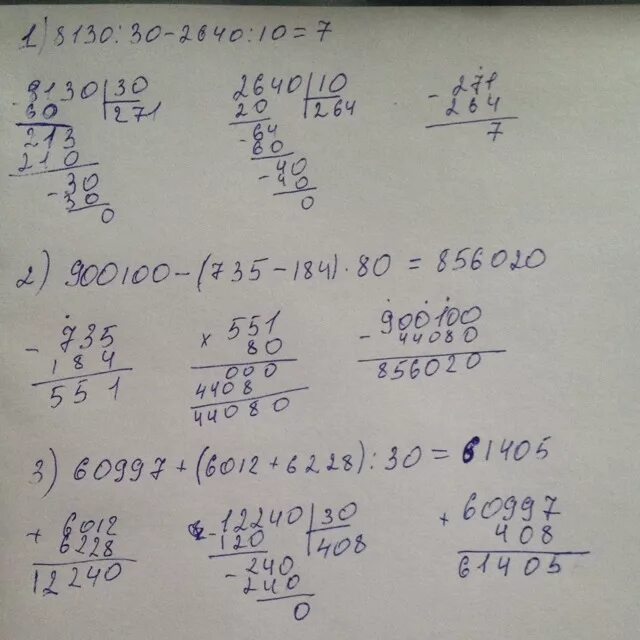 1) 8130:30-2640:10=7
8130 |30
60 271
213
210
-30
30
0
2640 |10
20 264
-64
60
-40
40
0
- 271
264
7
2) 900100-(735-184)·80=856020
- 735
184
551
x 551
80
000
4408
44080
- 900100
44080
856020
3) 60997+(6012+6228):30=61405
+ 6012
6228
12240
-12240 |30
120 408
-240
240
0
+ 60997
408
61405